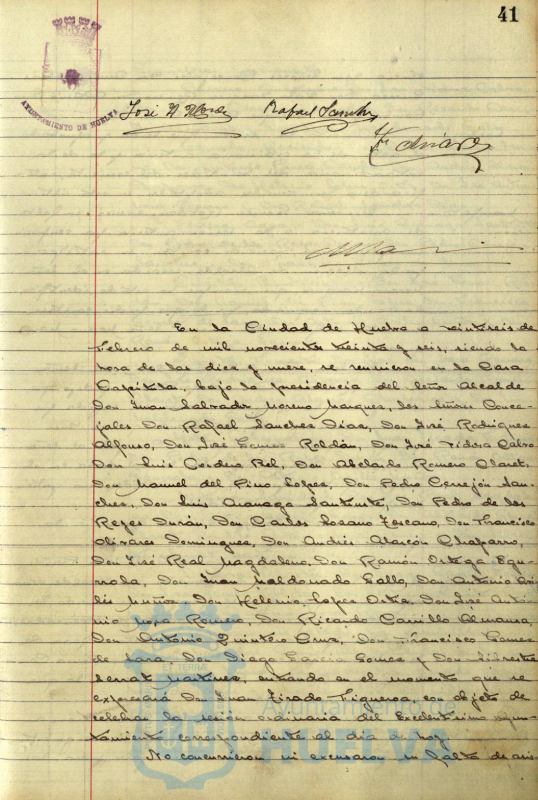 41
AYUNTAMIENTO DE HUELVA
José Rafael Sanchez
En la Ciudad de Huelva a veintiseis de
Febrero de mil novecientos treinta y seis, siendo la
hora de las diez y nueve, se reunieron en la Casa
Capitular, bajo la presidencia del Señor Alcalde
Don Juan Salvador Moreno Marquez, los Señores Conce-
jales Don Rafael Sanchez Diaz, Don José Rodriguez
Alfonso, Don José Gomez Roldán, Don José Tidera Calvo
Don Luis Cordero Bel, Don Abelardo Romero Claret,
Don Manuel del Pino Lopez, Don Pedro Cerrejón San-
chez, Don Luis Aranaga Don Pedro de los
Reyes Durán, Don Carlos Lozano Toscano, Don Francisco
Olivares Dominguez, Don Andrés Alarcón Chaparro,
Don José Real Magdaleno, Don Ramón Ortega Egu-
rrola, Don Juan Maldonado Gallo, Don Antonio
Muñoz, Don Helenio Lopez Ortiz, Don José Antó-
nio Mora Romero, Don Ricardo Carrillo Almansa,
Don Antonio Quintero Cruz, Don Francisco Gomez
de Lara, Don Diego Garcia Gomez y Don Silvestre
Serrat Martinez, entrando en el momento que se
expresará Don Juan Tirado Figueroa, con objeto de
celebrar la sesión ordinaria del Excelentisimo Ayun-
tamiento correspondiente al dia de hoy
No concurrieron ni excusaron su falta de asis-
Ayuntamiento de
HUELVA